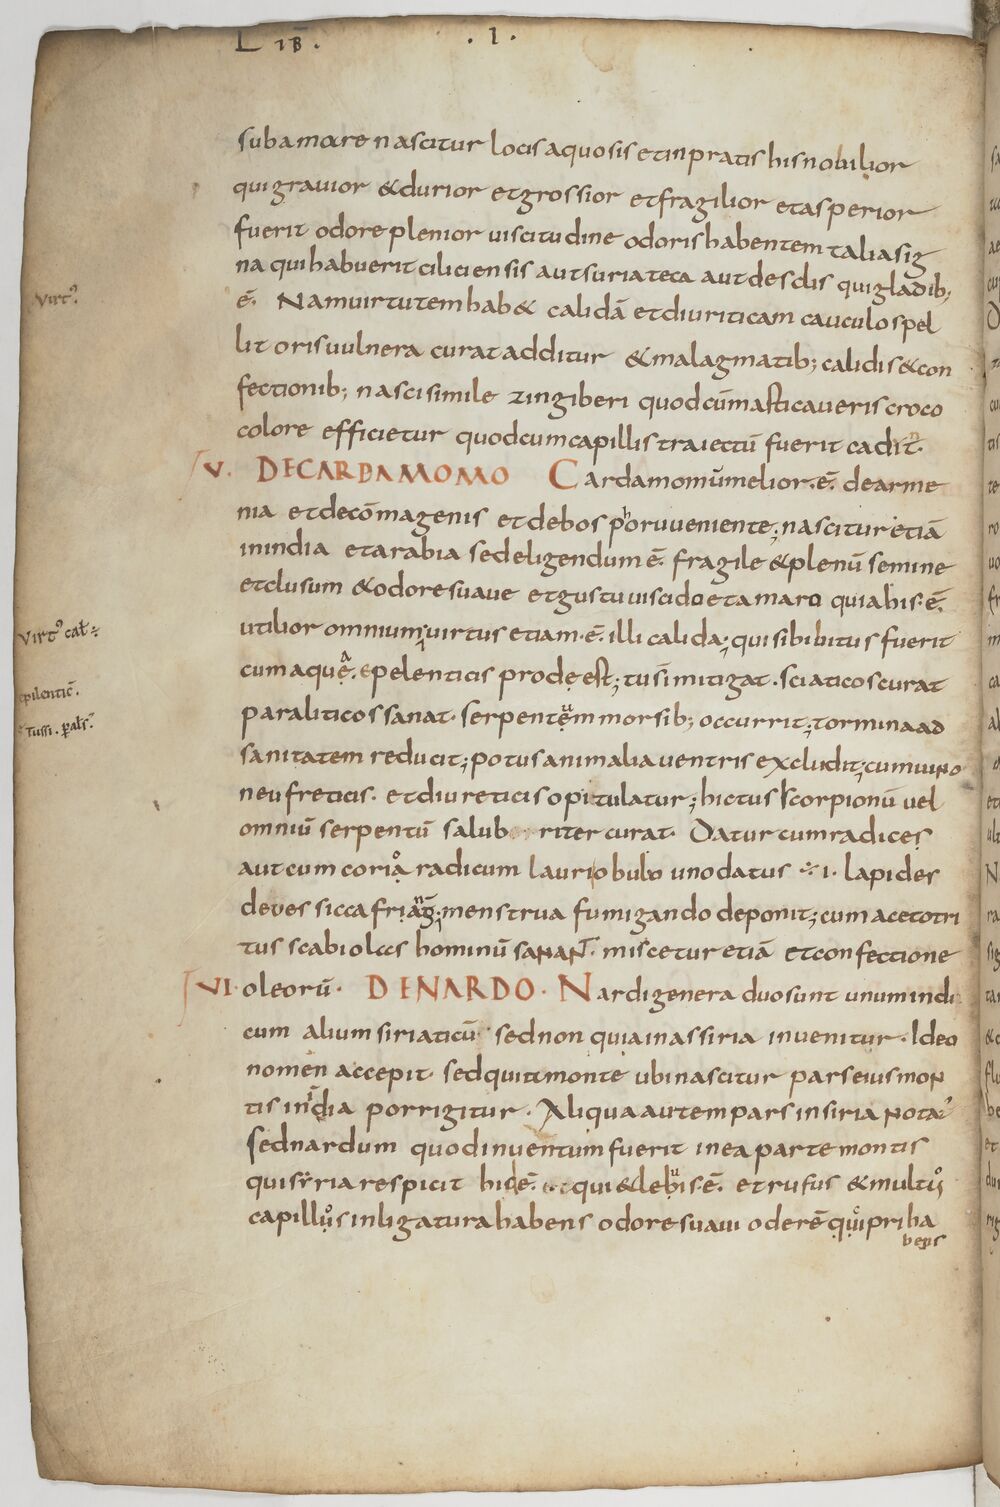 LIB. .I.
subamore nascitur locis aquosis et in pratis his nobilior
qui gravior & durior et grossior et fragilior et asperior
fuerit odore plenior uiscitudine odoris habentem talia sig
na qui habuerit ciliciensis aut suriateca aut desclis qui gladib;
ē. Nam uirtutem hab& calidā et diuriticam cauculos pel
virt᾽
lit oris uulnera curat additur & malagmatib; calidis & con
fectionib; nasci simile zingiberi quod cū masticaueris croco
colore efficietur quodcum capillis traiectū fuerit cadit.
V. DE CARDAMOMO Cardamomū melior .ē. de arme
nia et decōmagenis et debosphoru ueniente; nascitur etiā
in india et arabia sed eligendum ē. fragile & plenū semine
et clusum & odore suaue et gustu uiscido et amaro quia his .ē.
virt᾽ cał
utilior omnium; uirtus etiam .ē. illi calida; qui sibi bitus fuerit
cum aquę. epelenticis prodeest; tusī mitigat . sciaticos curat
epilentic̄.
paraliticos sanat . serpentęum morsib; occurrit; tormina ad
tussi . paɫs.
sanitatem reducit; potus animalia uentris excludit; cum uino
neufreticis . et diureticis opitulatur; hictus scorpionū uel
omniū serpentū salubriter curat . Datur cum radices
aut cum corio radicum lauri obulo uno datus ÷ I . lapides
deues sicca friāg; menstrua fumigando deponit; cum aceto tri
tus scabiolas hominū sanant . miscetur etiā et confectione
VI. oleorū . DE NARDO . Nardi genera duo sunt unum indi
cum alium siriaticū sed non quia in assiria inuenitur . Ideo
nomen accepit . sed quit monte ubi nascitur pars eius mon
tis india porrigitur . Aliqua autem pars in siria nota᾽
sed nardum quod inuentum fuerit in ea parte montis
qui syria respicit hic ē. qui & lebis .ē. et rufus & multus
capillus inligatura habens odore suaui oderē quipri ha
bens